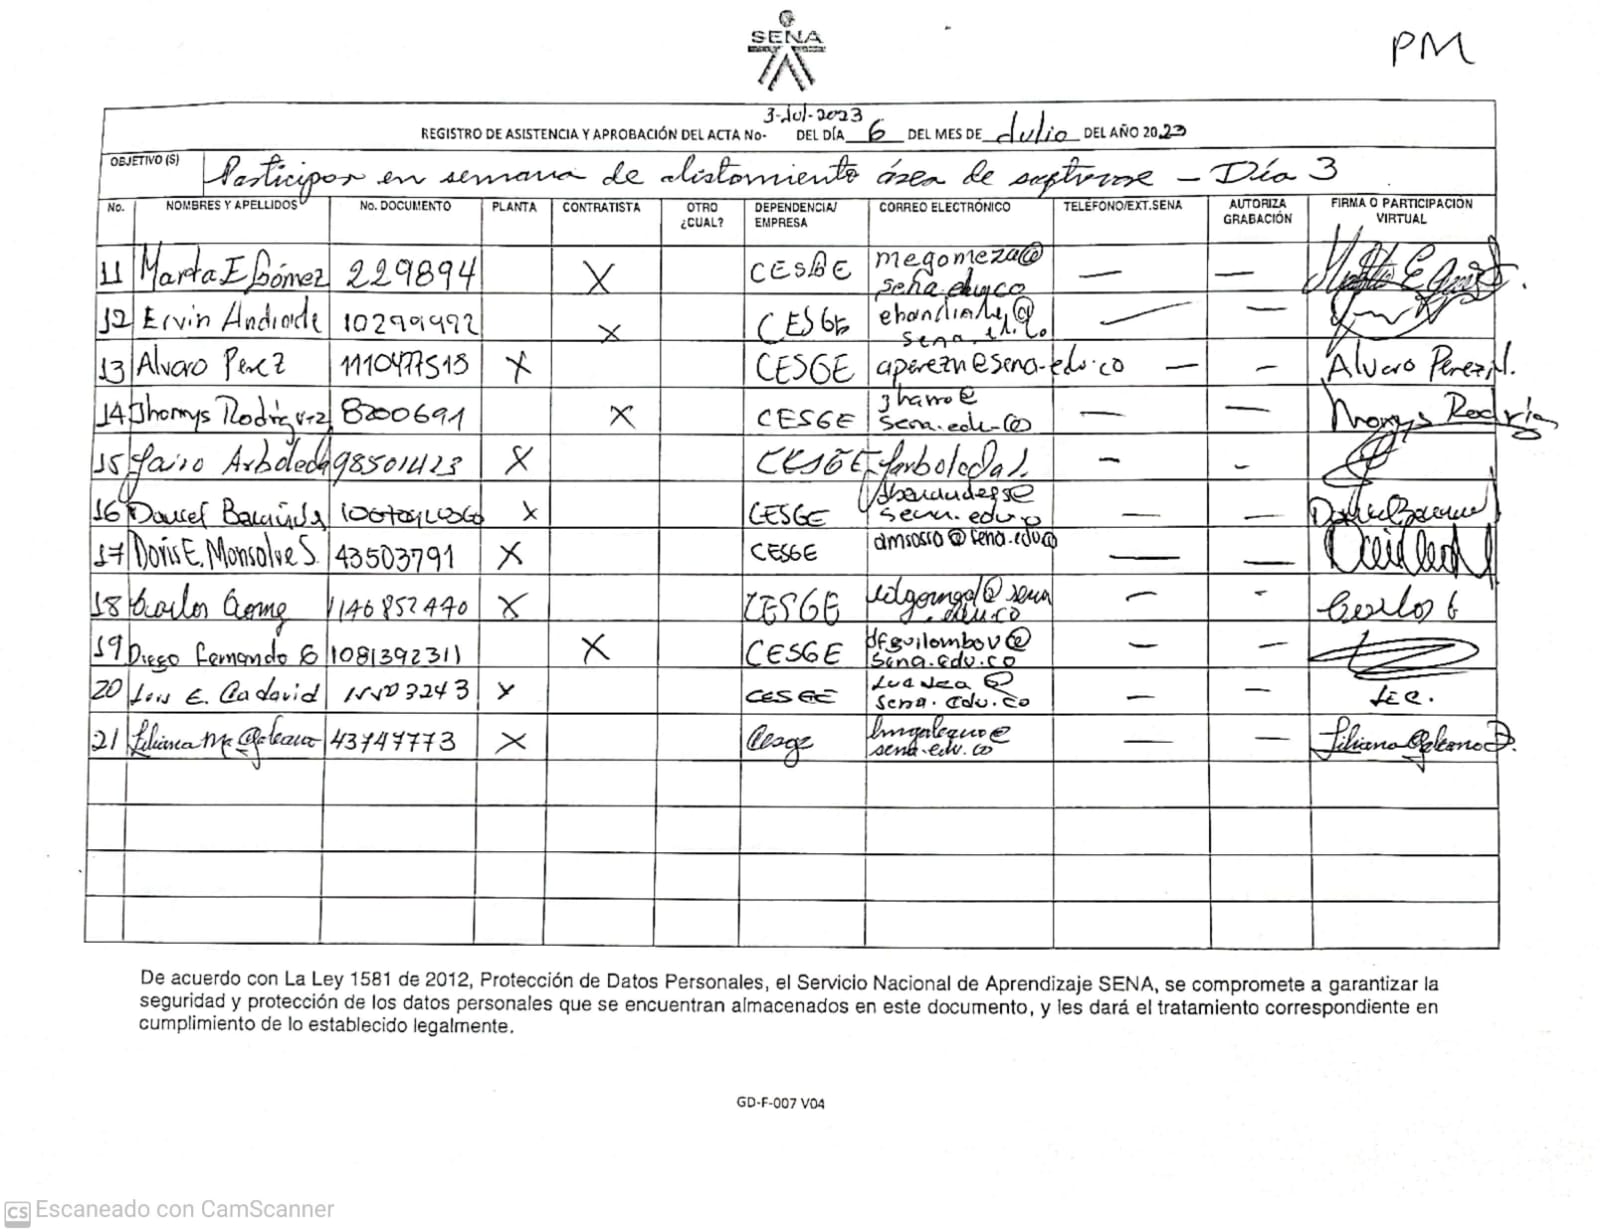 SENA
PM
3-Jul-2023
REGISTRO DE ASISTENCIA Y APROBACIÓN DEL ACTA No- DEL DÍA 6 DEL MES DE Julio DEL AÑO 2023
OBJETIVO (S) Participar en semana de alistamiento área de — Día 3
No. NOMBRES Y APELLIDOS No. DOCUMENTO PLANTA CONTRATISTA OTRO ¿CUAL? DEPENDENCIA/ EMPRESA CORREO ELECTRÓNICO TELÉFONO/EXT.SENA AUTORIZA GRABACIÓN FIRMA O PARTICIPACIÓN VIRTUAL
11 Marta E Gómez 229894 X CESGE megomeza@ sena.edu.co — —
12 Ervin Andrade 10299992 X CESGE sena.edu.co — —
13 Alvaro Perez 1110477515 X CESGE aperezn@sena.edu.co — — Alvaro Perez N.
14 Jhomys Rodríguez 8200691 X CESGE sena.edu.co — —
15 Jairo Arboleda 98501423 X CESGE Jarboleda1. — —
16 Daniel X CESGE sena.edu.co — —
17 Doris E. Monsalve S. 43503791 X CESGE @sena.edu.co — —
18 Carlos 1146852440 X CESGE @sena.edu.co — — Carlos G
19 Diego Fernando G 1081392311 X CESGE dfguilombov@ sena.edu.co — —
20 Luis E. Cadavid X CESGE sena.edu.co — — LEC.
21 Liliana Ma Galeano 43747773 X Cesge lmgaleano@ sena.edu.co — — Liliana Galeano
De acuerdo con La Ley 1581 de 2012, Protección de Datos Personales, el Servicio Nacional de Aprendizaje SENA, se compromete a garantizar la
seguridad y protección de los datos personales que se encuentran almacenados en este documento, y les dará el tratamiento correspondiente en
cumplimiento de lo establecido legalmente.
GD-F-007 V04
CS Escaneado con CamScanner